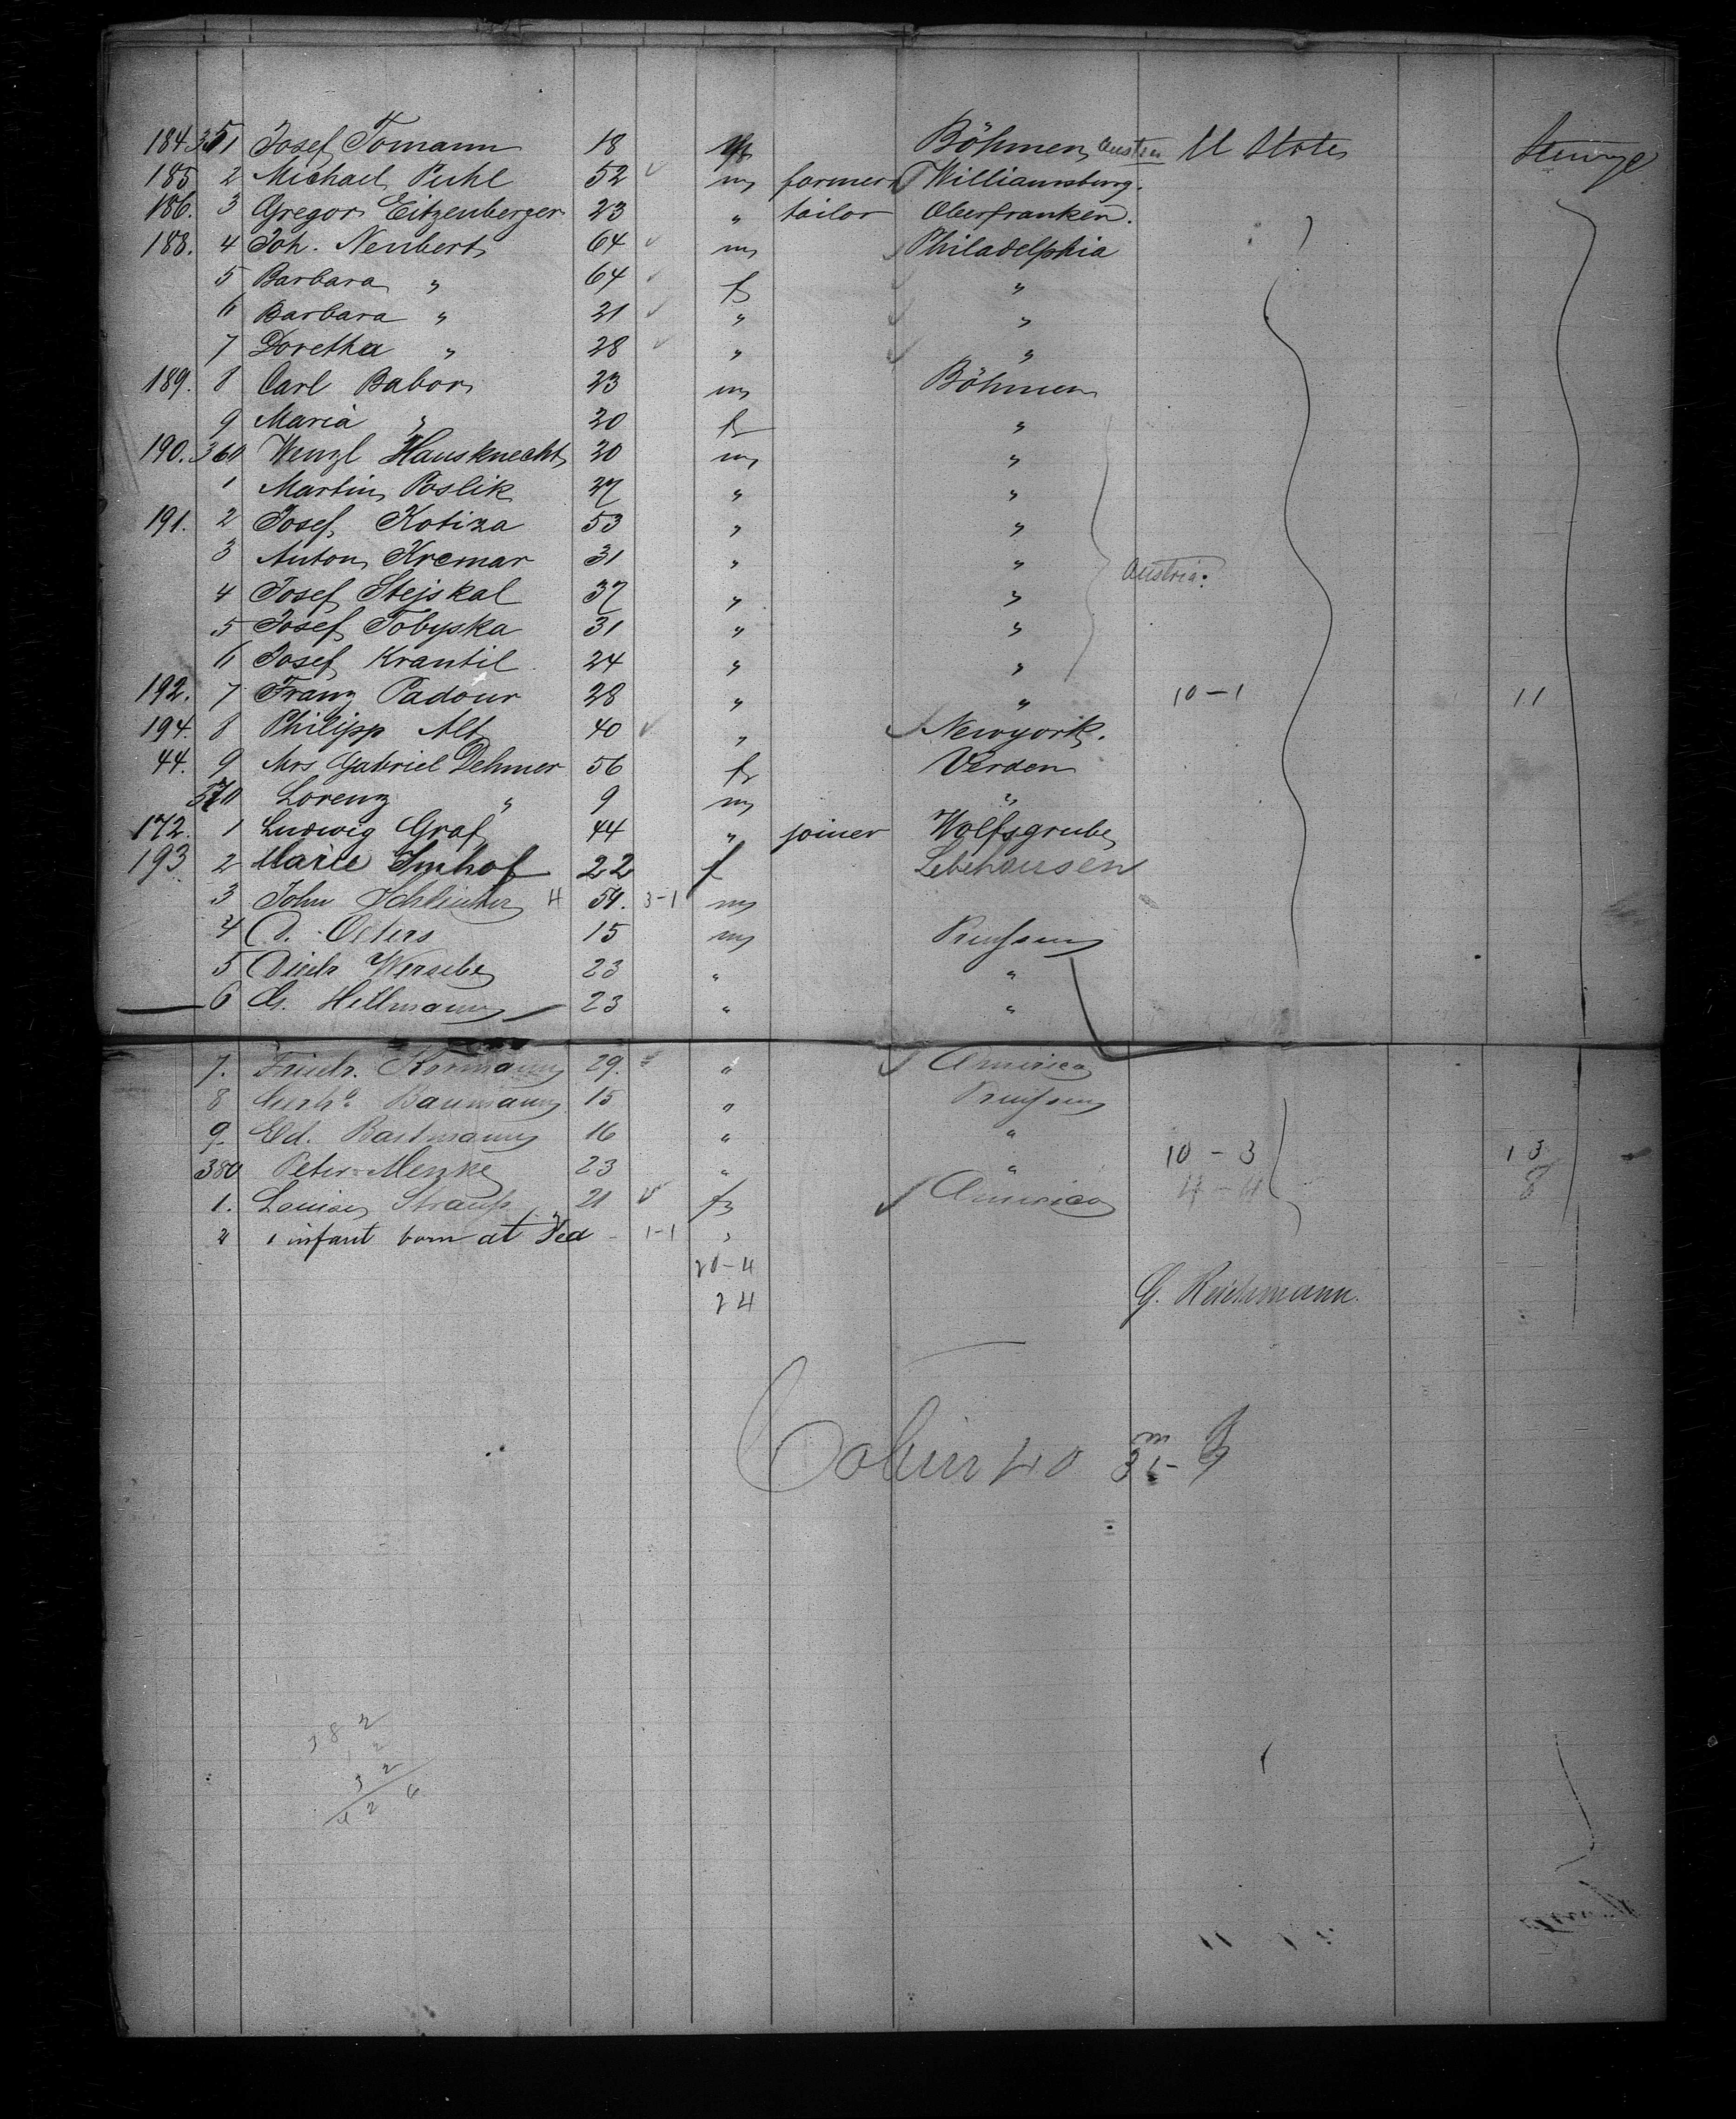 184. 351 Josef Tomann 18 m Böhmen Austria U States Steerage
185 2 Michael Puhl 52 m farmer Williamsburg.
186. 3 Gregor Eitzenberger 23 " tailor Oberfranken.
188. 4 Joh. Neubert 64 m Philadelphia
5 Barbara " 64 f "
6 Barbara " 21 " "
7 Doretha " 28 " "
189. 8 Carl Babor 23 m Böhmen
9 Maria " 20 f "
190. 360 Wenzl Hausknecht 20 m "
1 Martin Poslik 27 " "
191. 2 Josef Kotiza 53 " "
3 Anton Kremar 31 " "
4 Josef Stejskal 37 " " Austria.
5 Josef Tobyska 31 " "
6 Josef Krantil 24 " "
192. 7 Franz Padour 28 " " 10-1 11
194. 8 Philipp Alt 40 " Newyork.
44. 9 Mrs Gabriel Dehmer 56 f Verden
370 Lorenz " 9 m "
172. 1 Ludwig Graf 44 " joiner Wolfsgrube
193 2 Marie Imhof 22 f Lebehausen
3 John 59. 3-1 m
4 D. Oelers 15 m Preussen
5 Diedr Wersebe 23 " "
6 G. Hellmann 23 " "
7. Friedr. Kormann 29. " America
8 Baumann 15 " Preussen
9. Ed. Bartmann 16 " "
380 Peter Menke 23 " " 10-3 13
1. Louise Strauss 21 f America 4-4 8
2 1 infant born at Sea 1-1 "
20-4
24 G. Reichmann.
Cabin 40 m
382
12
32
426